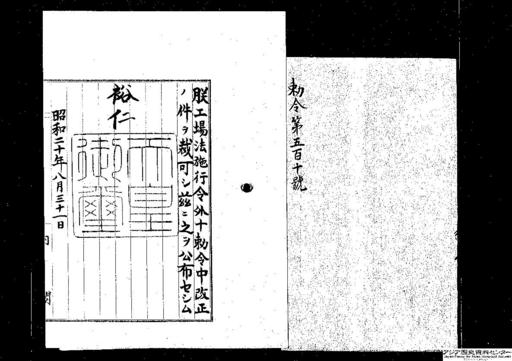 勅令第五百十號
朕工場法施行令外十勅令中改正
ノ件ヲ裁可シ茲ニ之ヲ公布セシム
裕仁
天皇御璽
昭和二十年八月三十一日
内閣
アジア歴史資料センター